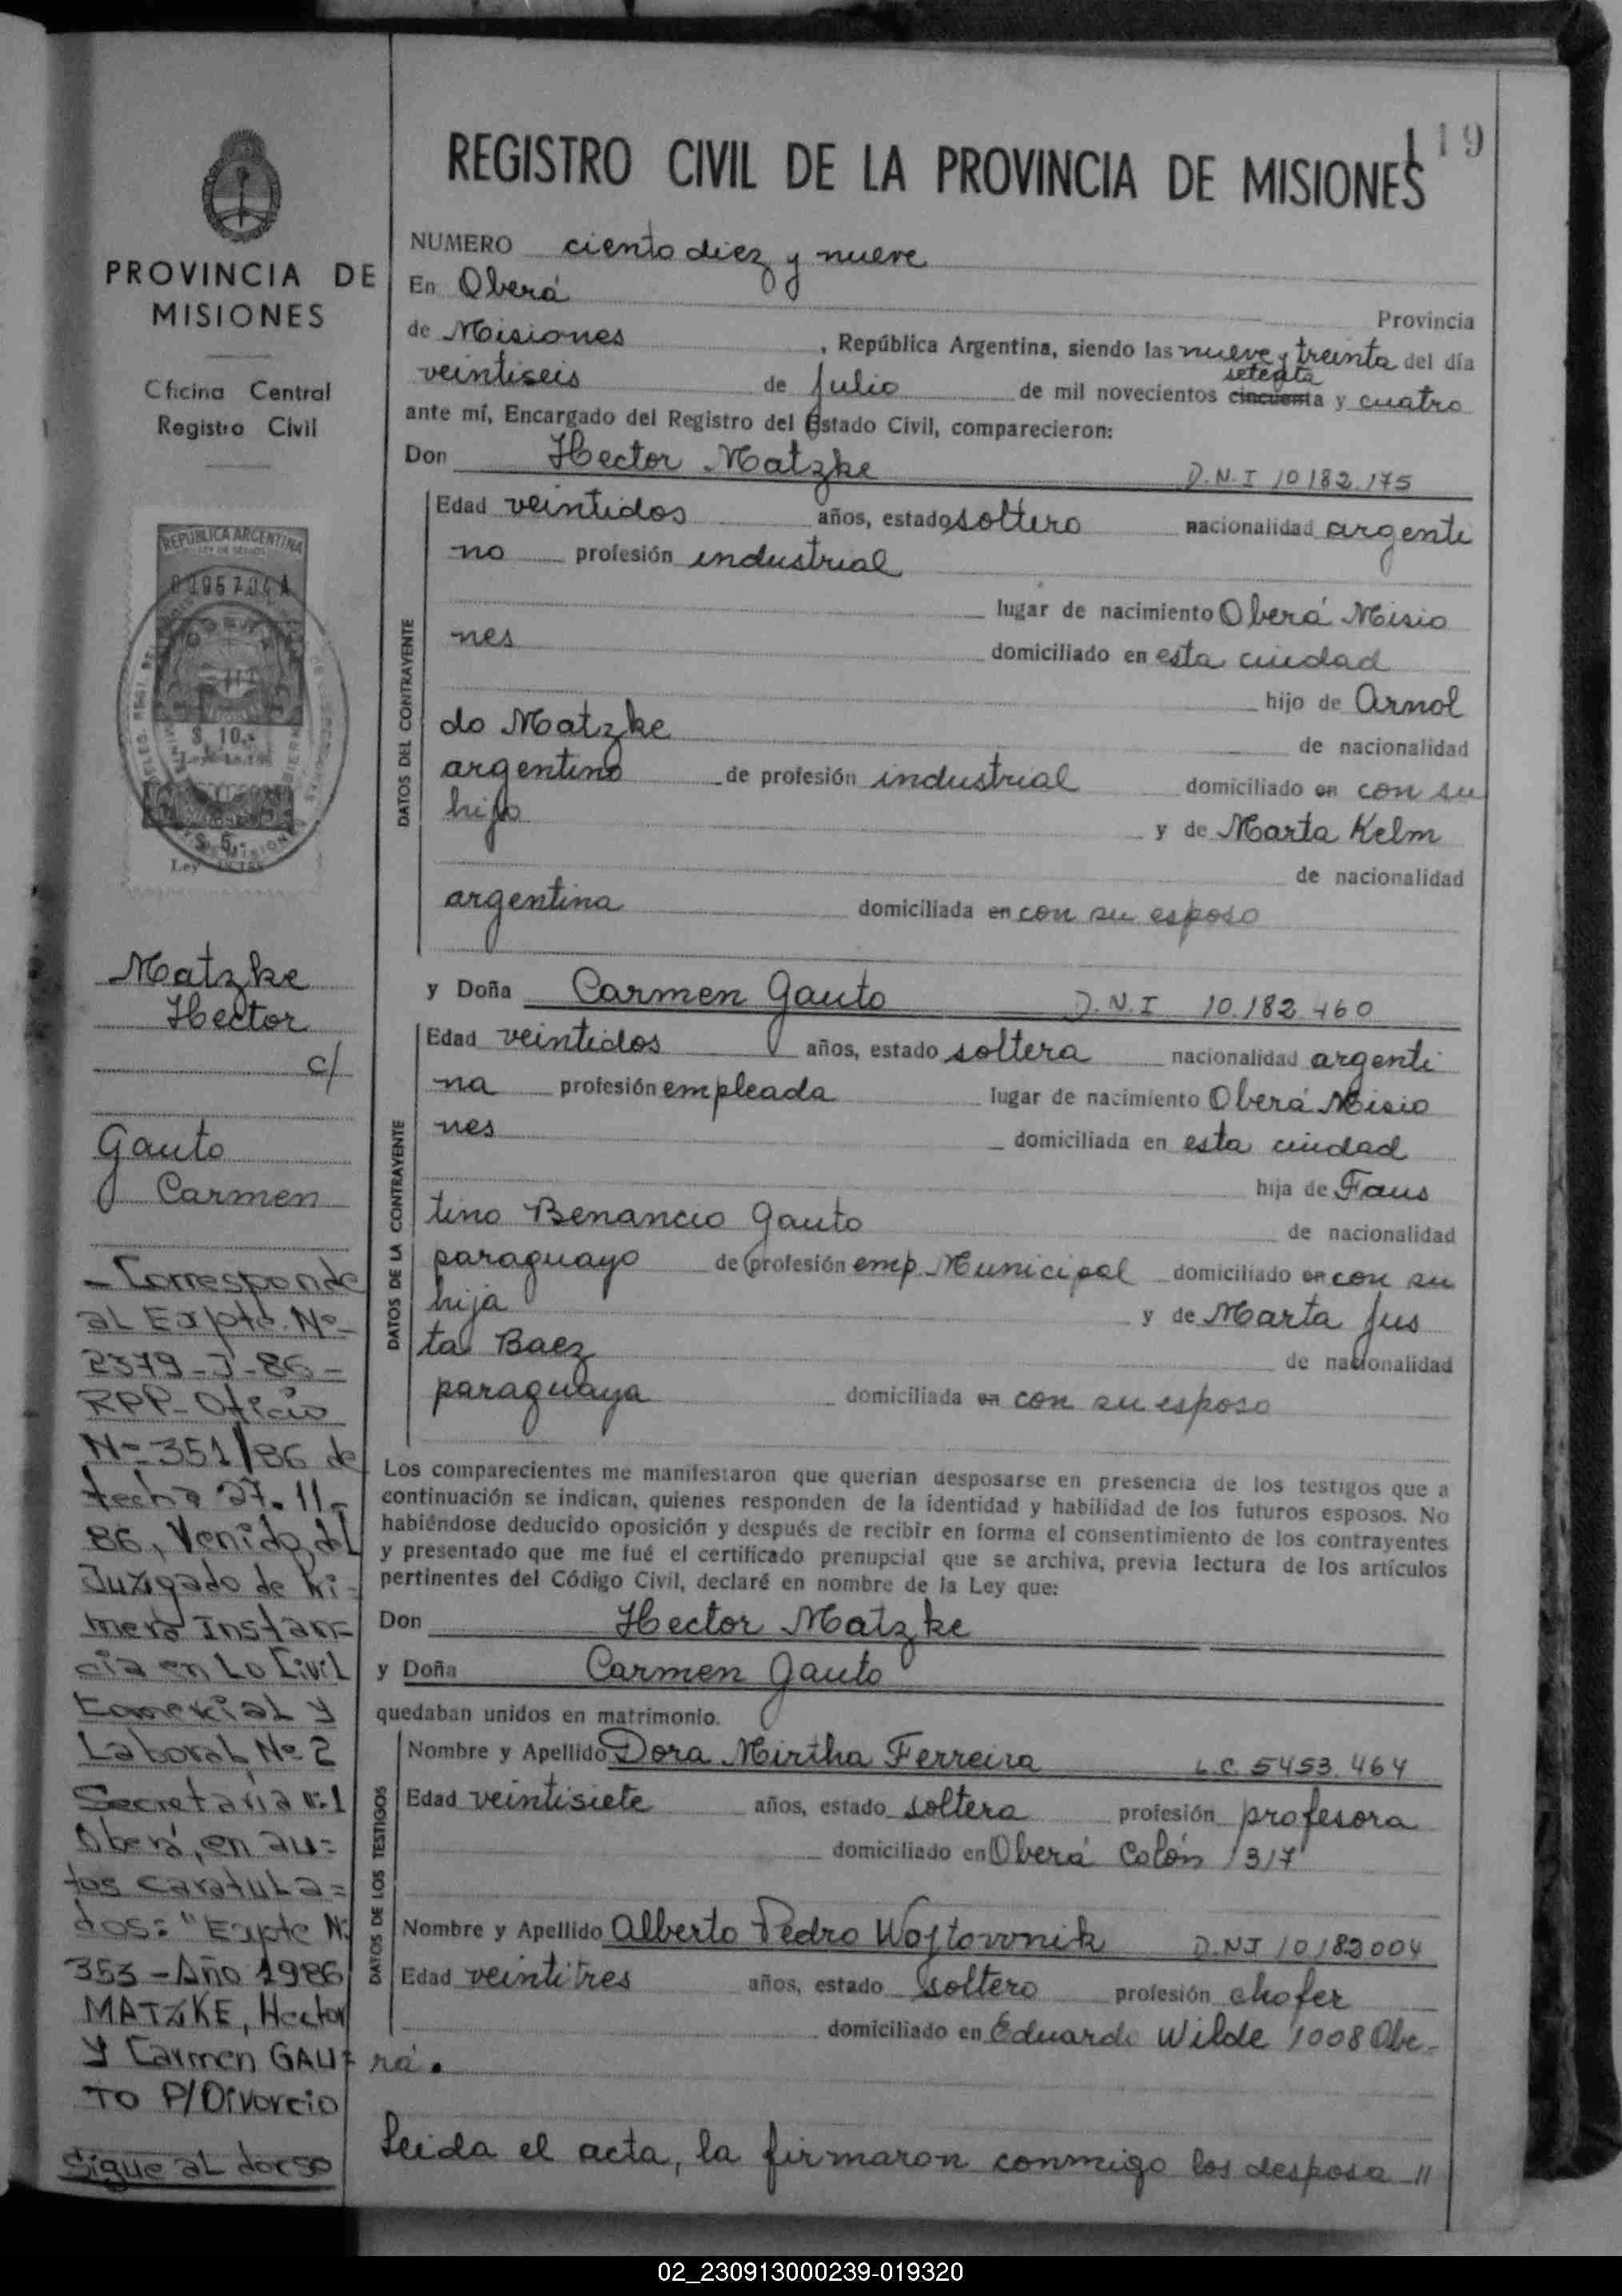 119
REGISTRO CIVIL DE LA PROVINCIA DE MISIONES
PROVINCIA DE
MISIONES
Oficina Central
Registro Civil
REPUBLICA ARGENTINA
LEY DE SELLOS
$ 10.-
$ 5.-
Ley
Matzke
Hector
c/
Gauto
Carmen
- Corresponde
al Expte. Nº-
2379-J-86-
RPP-Oficio
Nº 351/86 de
fecha 27.11-
86, Venido del
Juzgado de Pri-
mera Instan=
cia en Lo Civil
Comercial y
Laboral Nº 2
Secretaría Nº 1
Oberá, en au=
tos caratula=
dos: "Expte Nº
353 - Año 1986
MATZKE, Hector
y Carmen GAU=
TO P/Divorcio
Sigue al dorso
NUMERO ciento diez y nueve
En Oberá Provincia
de Misiones, República Argentina, siendo las nueve y treinta del día
veintiseis de julio de mil novecientos cincuenta setenta y cuatro
ante mí, Encargado del Registro del Estado Civil, comparecieron:
Don Hector Matzke D.N.I 10182.175
DATOS DEL CONTRAYENTE
Edad veintidos años, estado soltero nacionalidad argenti
no profesión industrial
lugar de nacimiento Oberá Misio
nes domiciliado en esta ciudad
hijo de Arnol
do Matzke de nacionalidad
argentino de profesión industrial domiciliado en con su
hijo y de Marta Kelm
de nacionalidad
argentina domiciliada en con su esposo
y Doña Carmen Gauto D.N.I 10.182.460
DATOS DE LA CONTRAYENTE
Edad veintidos años, estado soltera nacionalidad argenti
na profesión empleada lugar de nacimiento Oberá Misio
nes domiciliada en esta ciudad
hija de Faus
tino Benancio Gauto de nacionalidad
paraguayo de profesión emp Municipal domiciliado en con su
hija y de Marta Jus
ta Baez de nacionalidad
paraguaya domiciliada en con su esposo
Los comparecientes me manifestaron que querían desposarse en presencia de los testigos que a
continuación se indican, quienes responden de la identidad y habilidad de los futuros esposos. No
habiéndose deducido oposición y después de recibir en forma el consentimiento de los contrayentes
y presentado que me fué el certificado prenupcial que se archiva, previa lectura de los artículos
pertinentes del Código Civil, declaré en nombre de la Ley que:
Don Hector Matzke
y Doña Carmen Gauto
quedaban unidos en matrimonio.
DATOS DE LOS TESTIGOS
Nombre y Apellido Dora Mirtha Ferreira L.C. 5453.464
Edad veintisiete años, estado soltera profesión profesora
domiciliado en Oberá Colón 1317
Nombre y Apellido Alberto Pedro Wojtovvnik D.NI 10182004
Edad veintitres años, estado soltero profesión chofer
domiciliado en Eduardo Wilde 1008 Obe-
rá.
Leida el acta, la firmaron conmigo los desposa //
02_230913000239-019320